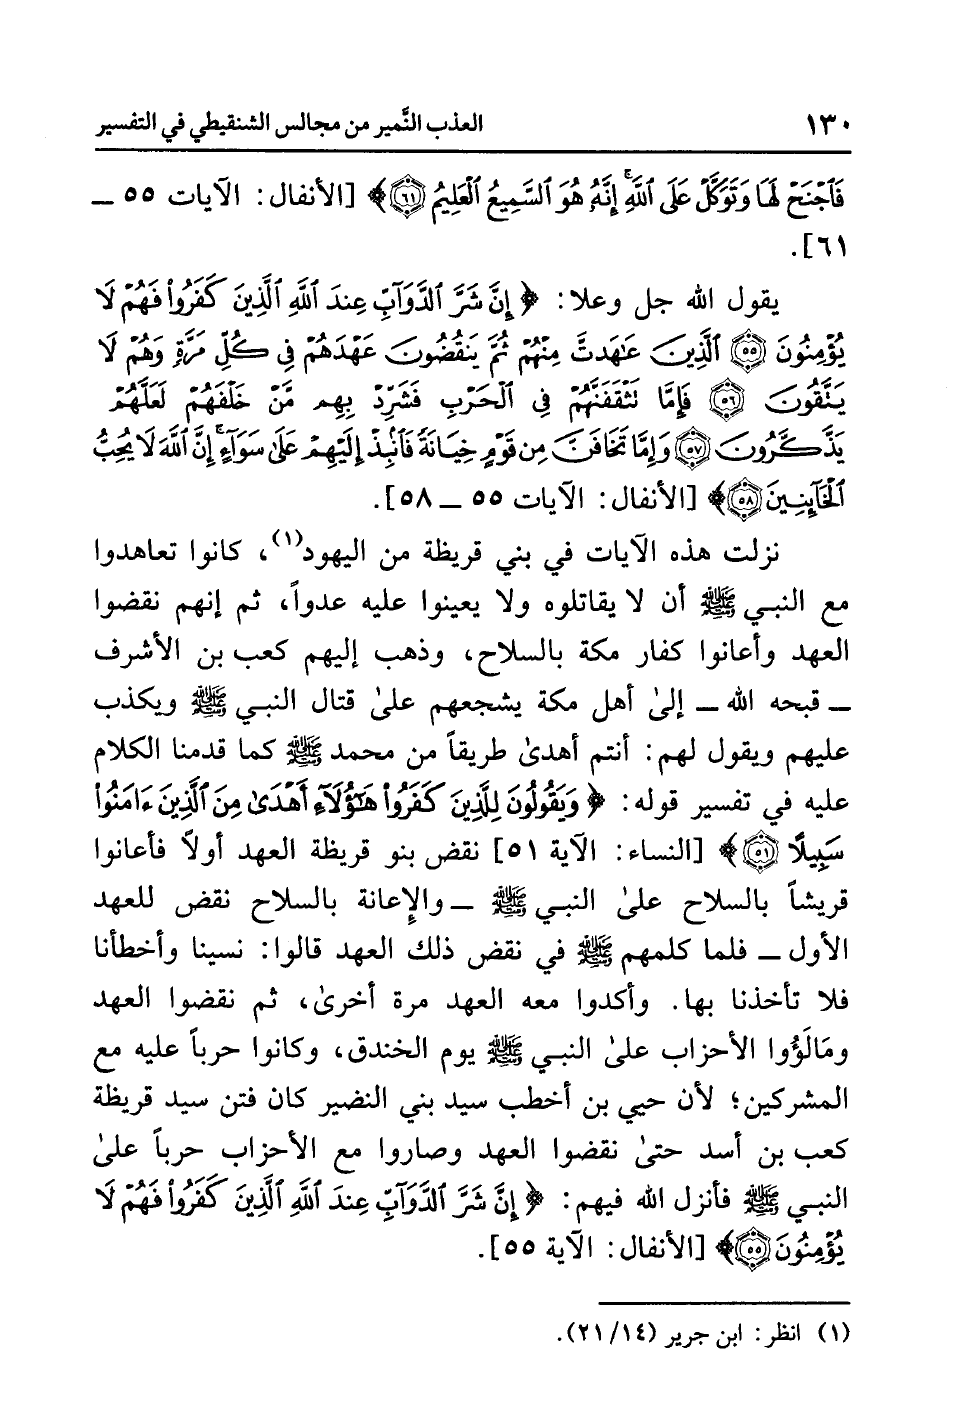 ١٣٠ العذب النَّمير من مجالس الشنقيطي في التفسير
فَٱجۡنَحۡ لَهَا وَتَوَكَّلۡ عَلَى ٱللَّهِۚ إِنَّهُۥ هُوَ ٱلسَّمِيعُ ٱلۡعَلِيمُ ۝٦١﴾ [الأنفال: الآيات ٥٥ ــ
٦١].
يقول الله جل وعلا: ﴿إِنَّ شَرَّ ٱلدَّوَآبِّ عِندَ ٱللَّهِ ٱلَّذِينَ كَفَرُواْ فَهُمۡ لَا
يُؤۡمِنُونَ ۝٥٥ ٱلَّذِينَ عَٰهَدتَّ مِنۡهُمۡ ثُمَّ يَنقُضُونَ عَهۡدَهُمۡ فِي كُلِّ مَرَّةٖ وَهُمۡ لَا
يَتَّقُونَ ۝٥٦ فَإِمَّا تَثۡقَفَنَّهُمۡ فِي ٱلۡحَرۡبِ فَشَرِّدۡ بِهِم مَّنۡ خَلۡفَهُمۡ لَعَلَّهُمۡ
يَذَّكَّرُونَ ۝٥٧ وَإِمَّا تَخَافَنَّ مِن قَوۡمٍ خِيَانَةٗ فَٱنۢبِذۡ إِلَيۡهِمۡ عَلَىٰ سَوَآءٍۚ إِنَّ ٱللَّهَ لَا يُحِبُّ
ٱلۡخَآئِنِينَ ۝٥٨﴾ [الأنفال: الآيات ٥٥ ــ ٥٨].
نزلت هذه الآيات في بني قريظة من اليهود(١)، كانوا تعاهدوا
مع النبي ﷺ أن لا يقاتلوه ولا يعينوا عليه عدواً، ثم إنهم نقضوا
العهد وأعانوا كفار مكة بالسلاح، وذهب إليهم كعب بن الأشرف
ــ قبحه الله ــ إلىٰ أهل مكة يشجعهم علىٰ قتال النبي ﷺ ويكذب
عليهم ويقول لهم: أنتم أهدىٰ طريقاً من محمد ﷺ كما قدمنا الكلام
عليه في تفسير قوله: ﴿وَيَقُولُونَ لِلَّذِينَ كَفَرُواْ هَٰٓؤُلَآءِ أَهۡدَىٰ مِنَ ٱلَّذِينَ ءَامَنُواْ
سَبِيلًا ۝٥١﴾ [النساء: الآية ٥١] نقض بنو قريظة العهد أولاً فأعانوا
قريشاً بالسلاح علىٰ النبي ﷺ ــ والإعانة بالسلاح نقض للعهد
الأول ــ فلما كلمهم ﷺ في نقض ذلك العهد قالوا: نسينا وأخطأنا
فلا تأخذنا بها. وأكدوا معه العهد مرة أخرىٰ، ثم نقضوا العهد
ومَالَؤُوا الأحزاب علىٰ النبي ﷺ يوم الخندق، وكانوا حرباً عليه مع
المشركين؛ لأن حيي بن أخطب سيد بني النضير كان فتن سيد قريظة
كعب بن أسد حتىٰ نقضوا العهد وصاروا مع الأحزاب حرباً علىٰ
النبي ﷺ فأنزل الله فيهم: ﴿إِنَّ شَرَّ ٱلدَّوَآبِّ عِندَ ٱللَّهِ ٱلَّذِينَ كَفَرُواْ فَهُمۡ لَا
يُؤۡمِنُونَ ۝٥٥﴾ [الأنفال: الآية ٥٥].
(١) انظر: ابن جرير (١٤/ ٢١).